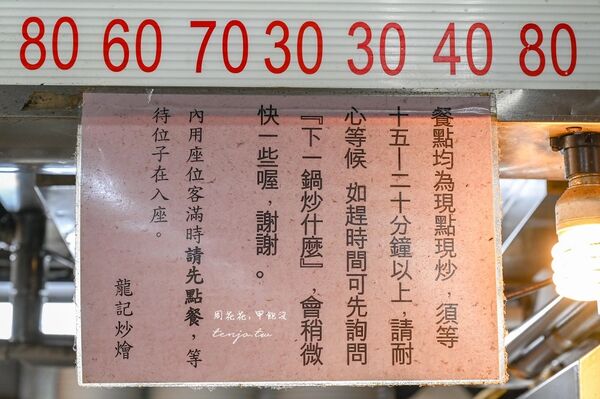 80 60 70 30 30 40 80
餐點均為現點現炒，須等
十五－二十分鐘以上，請耐
心等候 如趕時間可先詢問
『下一鍋炒什麼』，會稍微
快一些喔，謝謝。
內用座位客滿時請先點餐，等
待位子在入座。
龍記炒燴
周花花，甲飽沒
tenjo.tw